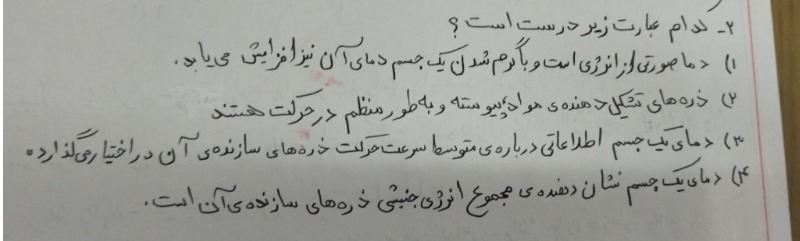 ۲- کدام عبارت زیر درست است؟
۱) دما صورتی از انرژی است و با گرم شدن یک جسم دمای آن نیز افزایش می‌یابد.
۲) ذره‌های تشکیل دهنده‌ی مواد، پیوسته و به طور منظم در حرکت هستند
۳) دمای یک جسم اطلاعاتی درباره‌ی متوسط سرعت حرکت ذره‌های سازنده‌ی آن در اختیار می‌گذارد.
۴) دمای یک جسم نشان دهنده‌ی مجموع انرژی جنبشی ذره‌های سازنده‌ی آن است.